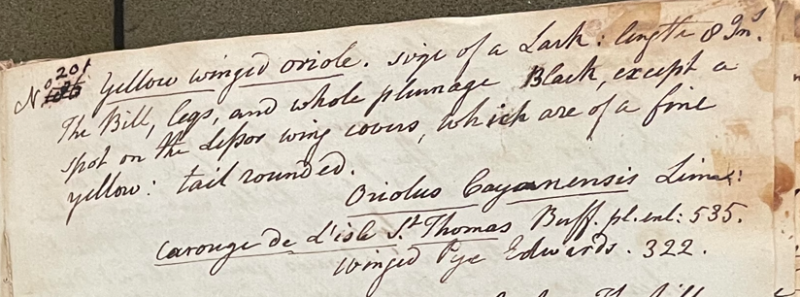 No 201. Yellow winged oriole. size of a Lark: length 8 Ins.
The Bill, legs, and whole plumage Black, except a
spot on the lesser wing covers, which are of a fine
yellow: tail rounded.
Oriolus Cayanensis Linn:
Carouge de L'isle St Thomas Buff. pl. enl: 535.
Winged Pye Edwards. 322.